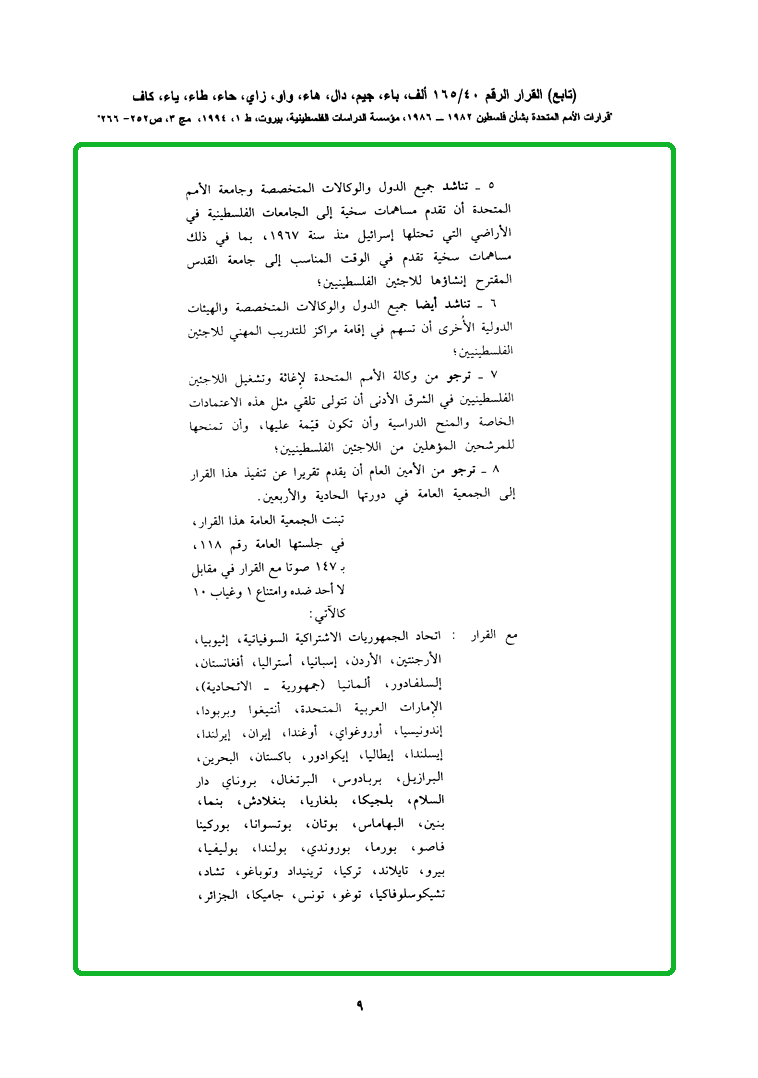 (تابع) القرار الرقم ١٦٥/٤٠ ألف، باء، جيم، دال، هاء، واو، زاي، حاء، طاء، ياء، كاف
"قرارات الأمم المتحدة بشأن فلسطين ١٩٨٢ ــ ١٩٨٦، مؤسسة الدراسات الفلسطينية، بيروت، ط ١، ١٩٩٤، مج ٣، ص٢٥٢- ٢٦٦"
٥ ـ تناشد جميع الدول والوكالات المتخصصة وجامعة الأمم
المتحدة أن تقدم مساهمات سخية إلى الجامعات الفلسطينية في
الأراضي التي تحتلها إسرائيل منذ سنة ١٩٦٧، بما في ذلك
مساهمات سخية تقدم في الوقت المناسب إلى جامعة القدس
المقترح إنشاؤها للاجئين الفلسطينيين؛
٦ ـ تناشد أيضا جميع الدول والوكالات المتخصصة والهيئات
الدولية الأخرى أن تسهم في إقامة مراكز للتدريب المهني للاجئين
الفلسطينيين؛
٧ ـ ترجو من وكالة الأمم المتحدة لإغاثة وتشغيل اللاجئين
الفلسطينيين في الشرق الأدنى أن تتولى تلقي مثل هذه الاعتمادات
الخاصة والمنح الدراسية وأن تكون قيّمة عليها، وأن تمنحها
للمرشحين المؤهلين من اللاجئين الفلسطينيين؛
٨ ـ ترجو من الأمين العام أن يقدم تقريرا عن تنفيذ هذا القرار
إلى الجمعية العامة في دورتها الحادية والأربعين.
تبنت الجمعية العامة هذا القرار،
في جلستها العامة رقم ١١٨،
بـ ١٤٧ صوتا مع القرار في مقابل
لا أحد ضده وامتناع ١ وغياب ١٠
كالآتي:
مع القرار : اتحاد الجمهوريات الاشتراكية السوفياتية، إثيوبيا،
الأرجنتين، الأردن، إسبانيا، أستراليا، أفغانستان،
إلسلفادور، ألمانيا (جمهورية ـ الاتحادية)،
الإمارات العربية المتحدة، أنتيغوا وبربودا،
إندونيسيا، أوروغواي، أوغندا، إيران، إيرلندا،
إيسلندا، إيطاليا، إيكوادور، باكستان، البحرين،
البرازيل، بربادوس، البرتغال، بروناي دار
السلام، بلجيكا، بلغاريا، بنغلادش، بنما،
بنين، البهاماس، بوتان، بوتسوانا، بوركينا
فاصو، بورما، بوروندي، بولندا، بوليفيا،
بيرو، تايلاند، تركيا، ترينيداد وتوباغو، تشاد،
تشيكوسلوفاكيا، توغو، تونس، جاميكا، الجزائر،
٩